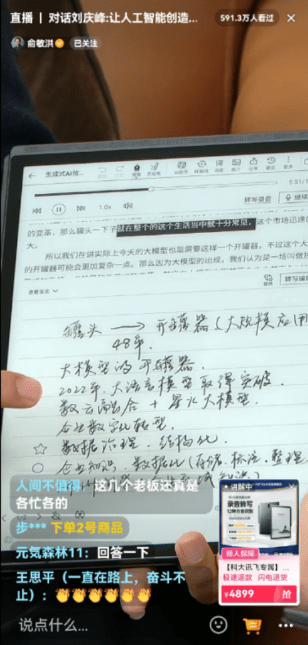 直播 | 对话刘庆峰:让人工智能创造...
591.3万人看过
俞敏洪
已关注
生成式AI给...
1.0x
转写设置
继续
的变革，那么罐头一下子就在整个的这个生活当中就十分常见，这个市场迅速
大。
所以我们在讲实际上今天的大模型也是需要这样一个开罐器，不过这个大
的开罐器可能会更加复杂一点。那么因为大模型的出现，我们认为是一场叫做技
查看全文
罐头 → 开罐器（大规模应用
48年
大模型的开罐器
2022年 大语言模型取得突破
数云融合 + 星火大模型
企业数字化转型
数据治理、结构化
企业知识、数据化（存储、标注、整理
人间不值得： 这几个老板还真是
各忙各的
步*** 下单2号商品
元気森林11： 回答一下
王思平（一直在路上，奋斗不
止）：👏👏👏👏👏👏
讲解中
录音转写
新人保障
【科大讯飞专属】...
极速退款 闪电退货
¥4899 抢
说点什么...